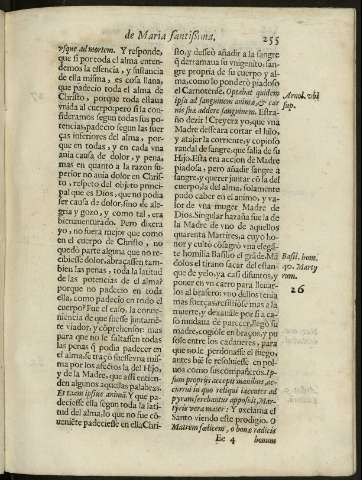 de Maria santissima.
255
vsque ad mortem. Y responde,
que si por toda el alma enten-
demos la essencia, y sustancia
de ella misma, es cosa llana,
que padecio toda el alma de
Christo, porque toda estaua
vnida al cuerpo: pero si la con-
sideramos segun todas sus po-
tencias, padecio segun las fuer
ças inferiores del alma, por-
que en todas, y en cada vna
auia causa de dolor, y pena,
mas en quanto a la razon su-
perior no auia dolor en Chris-
to, respeto del objeto princi-
pal que es Dios, que no podia
ser causa de dolor, sino de ale-
gria y gozo, y como tal, era
bienauenturado. Pero dixera
yo, no fuera mejor que como
en el cuerpo de Christo, no
quedò parte alguna que no re-
cibiesse dolor, abraçassen tam-
bien las penas, toda la latitud
de las potencias de el alma?
porque no padecio en toda
ella, como padecio en todo el
cuerpo? Fue el caso, la conue-
niencia de que fuesse juntamē-
te viador, y cōprehensor: mas
para que no le faltassen todas
las penas q̃ podia padecer en
el alma, se traçò sucessiva mis-
ma por los afectos la del Hijo,
y de la Madre, que assi entien-
den algunos aquellas palabras.
Et tuam ipsius animā. Y que pa-
deciesse ella segun toda la lati-
tud del alma, lo que no fue cō-
ueniēte padeciesse en ella Chri-
sto, y desseò añadir a la sangre
q̃ derramaua su vnigenito, san-
gre propria de su cuerpo y al-
ma, como lo ponderò piadoso
el Carnotense. Optabat quidem
ipsa ad sanguinem animæ, & car
nis suæ addere sanguinem. Estra-
ño dezir! Creyera yo, que vna
Madre desseara cortar el hilo,
y atajar la corriente, y copioso
raudal de sangre, que salia de su
Hijo. Esta era accion de Madre
piadosa, pero añadir sangre a
sangre, y querer juntar cō la del
cuerpo, la del alma, solamente
pudo caber en el animo, y va-
lor de vna muger Madre de
Dios. Singular hazaña fue la de
la Madre de vno de aquellos
quarenta Martires, a cuyo ho-
nor y culto cōsagrò vna elegā-
te homilia Basilio el grāde. Mā
dolos el tirano sacar del estan-
que de yelo, ya casi difuntos, y
poner en vn carro para lleuar-
los al brasero: vno dellos tenia
mas fuerças, resistiòse mas a la
muerte, y dexauāle por si a ca-
so mudaua de parecer, llegò su
madre, cogiòle en braços, y pu
sole entre los cadaueres, para
que no le perdonasse el fuego,
antes biē le resoluiesse en pol-
uos como sus compañeros. Ip-
sum proprijs acceptū manibus, ac-
curru in quo reliqui iacentes ad
pyram ferebantur apposuit, Mar-
tyris vera mater: Y exclama el
Santo viendo este prodigio. O
Matrem fœlicem, o bonæ radicis
Ee 4
bonum
Arnol. vbi
sup.
Basil. hom.
40. Marty
rom.
26